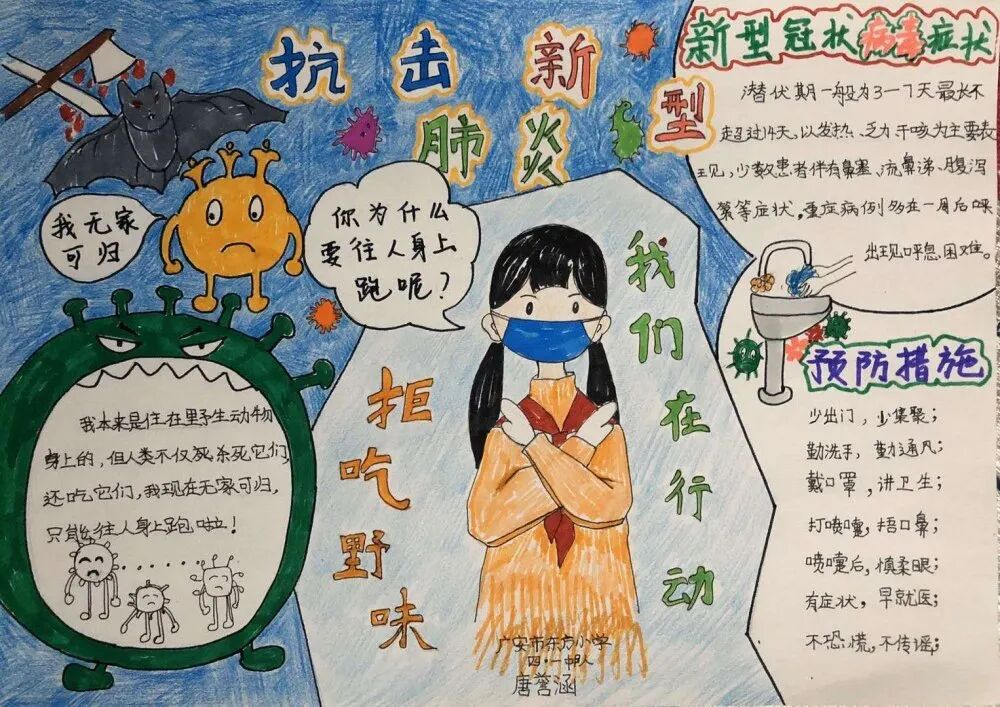 抗击新型
肺炎
新型冠状病毒症状
潜伏期一般为3—7天最长不
超过14天,以发热、乏力干咳为主要表
现,少数患者伴有鼻塞、流鼻涕、腹泻
等症状,重症病例多在一周后
出现呼吸困难。
我无家
可归
你为什么
要往人身上
跑呢?
我本来是住在野生动物
身上的,但人类不仅杀死它们
还吃它们,我现在无家可归,
只能往人身上跑啦!
拒吃野味
我们在行动
广安市东方小学
四·一中队
唐誉涵
预防措施
少出门,少集聚;
勤洗手,勤通风;
戴口罩,讲卫生;
打喷嚏,捂口鼻;
喷嚏后,慎柔眼;
有症状,早就医;
不恐慌,不传谣;